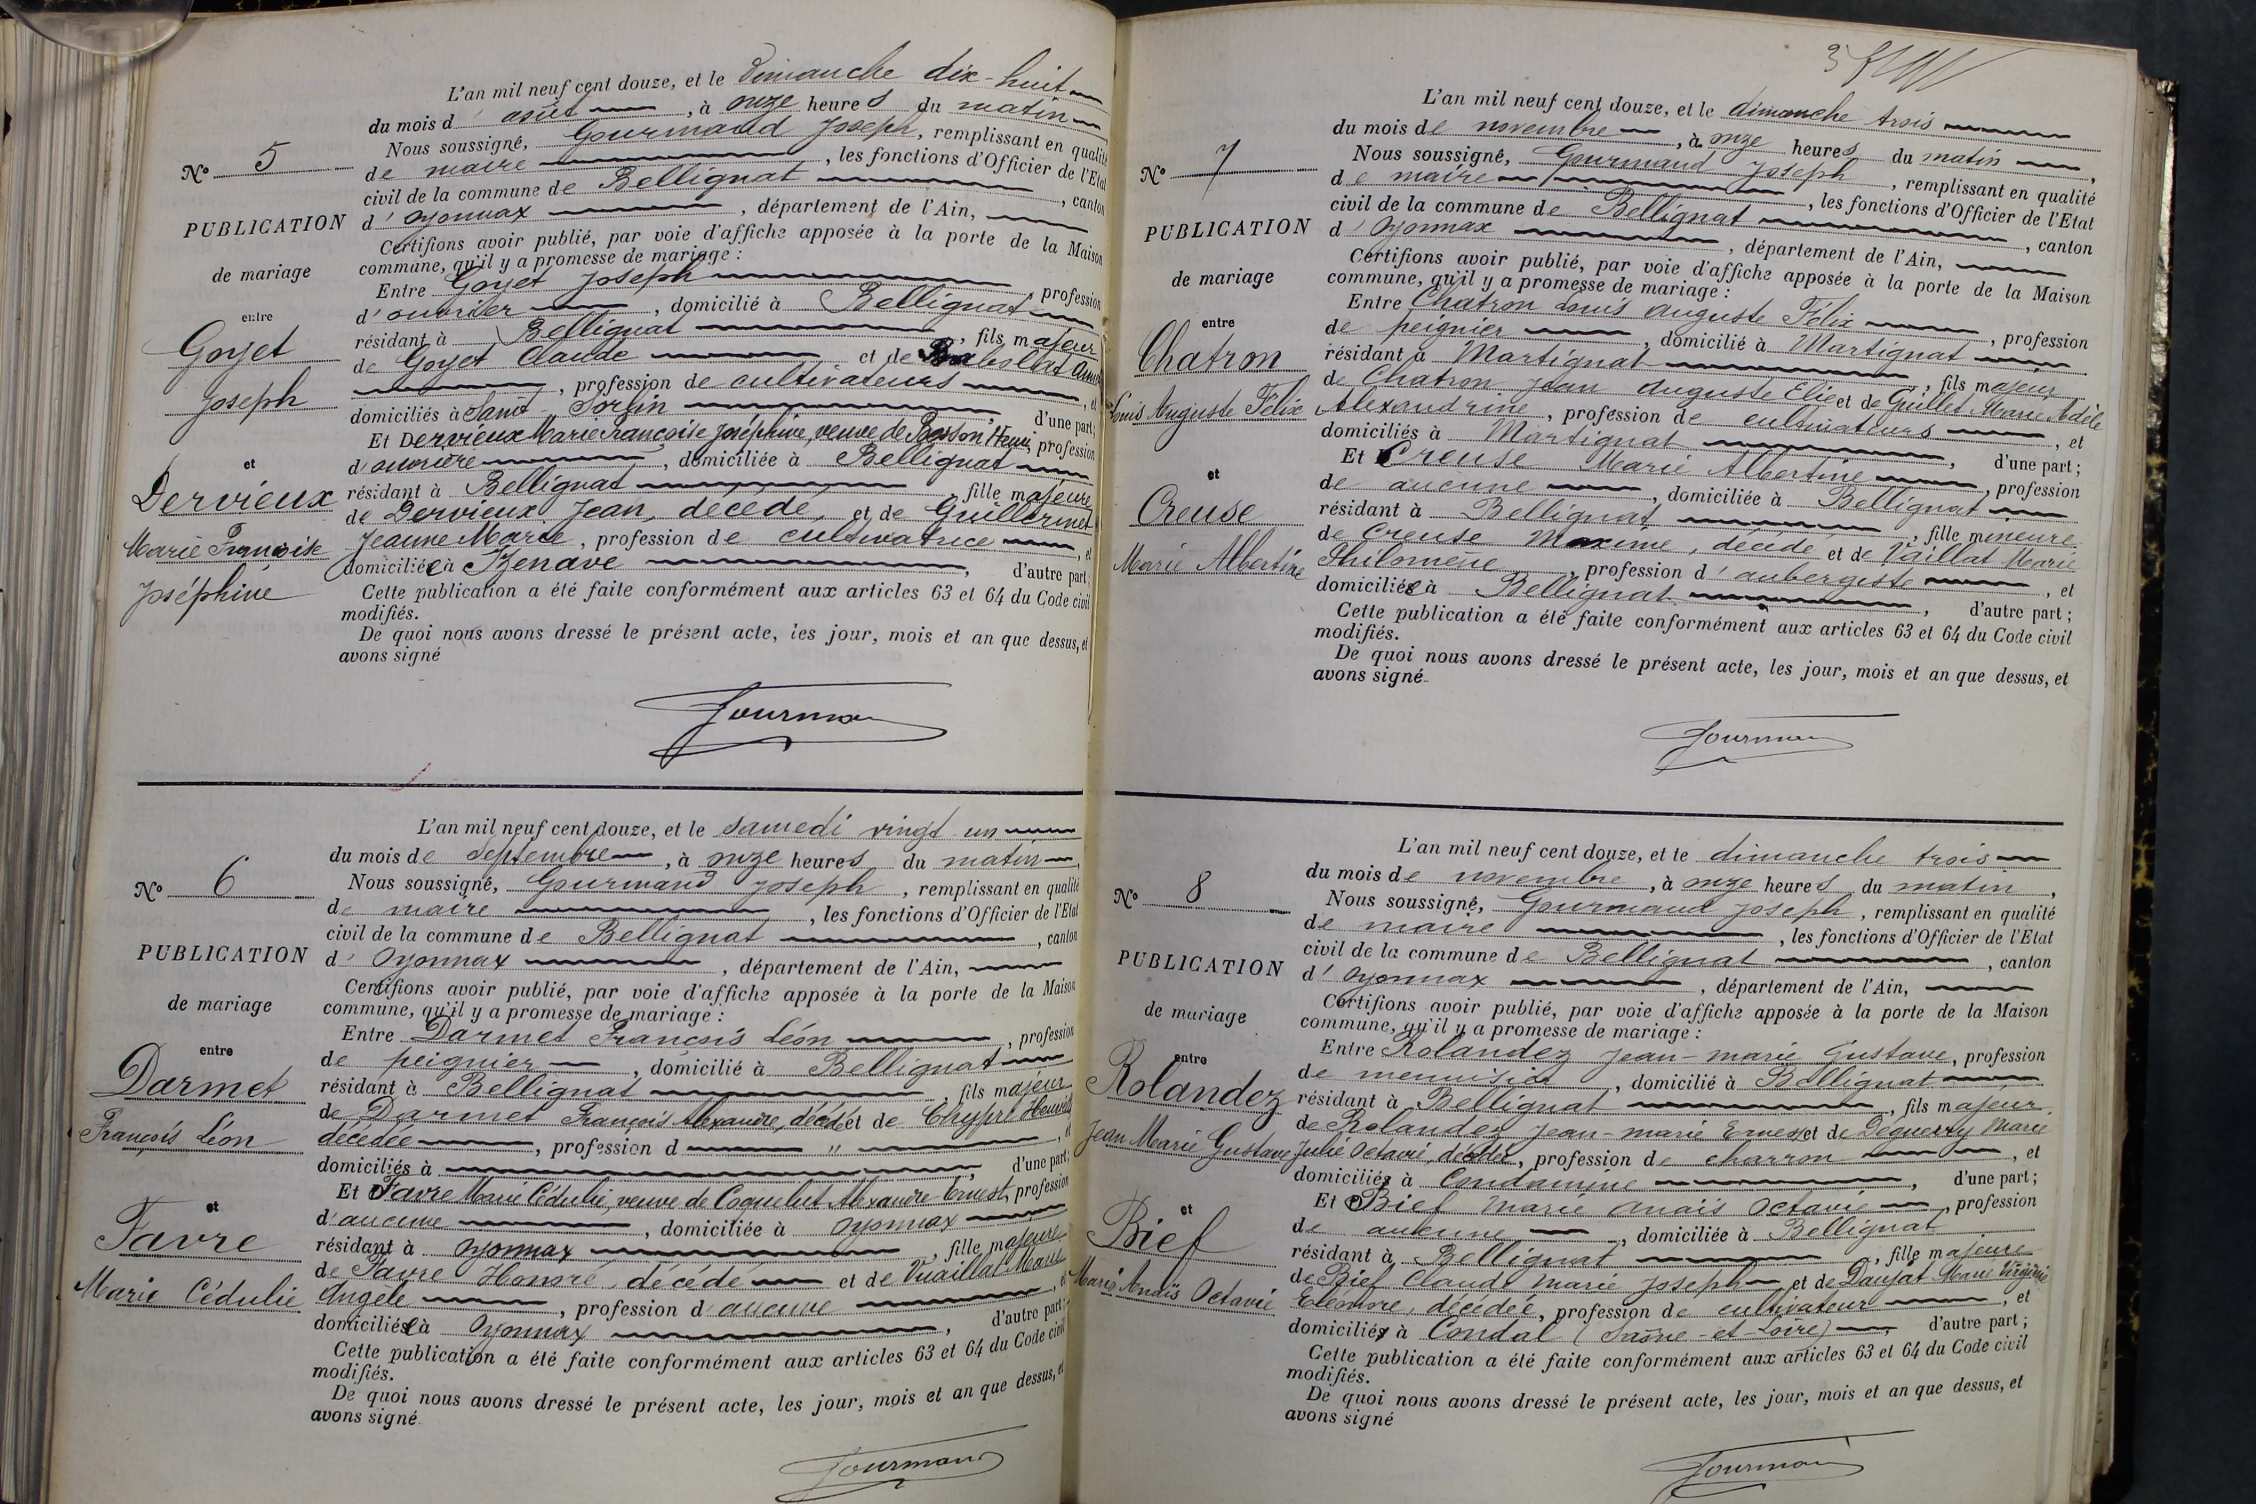 N° 5
PUBLICATION
de mariage
entre
Goyet
Joseph
et
Dervieux
Marie Françoise
Joséphine
L'an mil neuf cent douze, et le dimanche dix-huit
du mois d'août, à onze heures du matin
Nous soussigné, Gourmand Joseph, remplissant en qualité
de maire, les fonctions d'Officier de l'Etat
civil de la commune de Bellignat, canton
d'Oyonnax, département de l'Ain,
Certifions avoir publié, par voie d'affiche apposée à la porte de la Maison
commune, qu'il y a promesse de mariage :
Entre Goyet Joseph, profession
d'ouvrier, domicilié à Bellignat
résidant à Bellignat, fils majeur
de Goyet Claude et de
, profession de cultivateurs, et
domiciliés à Saint-Sorlin, d'une part;
Et Dervieux Marie Françoise Joséphine, veuve de Besson Henri, profession
d'ouvrière, domiciliée à Bellignat
résidant à Bellignat, fille majeure
de Dervieux Jean, décédé, et de Guillermet
Jeanne Marie, profession de cultivatrice, et
domiciliée à Izenave, d'autre part;
Cette publication a été faite conformément aux articles 63 et 64 du Code civil
modifiés.
De quoi nous avons dressé le présent acte, les jour, mois et an que dessus, et
avons signé
Gourmand
N° 6
PUBLICATION
de mariage
entre
Darmet
François Léon
et
Favre
Marie Cédulie
L'an mil neuf cent douze, et le samedi vingt-un
du mois de septembre, à onze heures du matin,
Nous soussigné, Gourmand Joseph, remplissant en qualité
de maire, les fonctions d'Officier de l'Etat
civil de la commune de Bellignat, canton
d'Oyonnax, département de l'Ain,
Certifions avoir publié, par voie d'affiche apposée à la porte de la Maison
commune, qu'il y a promesse de mariage :
Entre Darmet François Léon, profession
de peignier, domicilié à Bellignat
résidant à Bellignat, fils majeur
de Darmet François Alexandre, décédé et de
décédée, profession d ", et
domiciliés à, d'une part;
Et Favre Marie Cédulie, veuve de Coquelut Alexandre Ernest, profession
d'aucune, domiciliée à Oyonnax
résidant à Oyonnax, fille majeure
de Favre Honoré, décédé et de Vuaillat Marie
Angèle, profession d'aucune, et
domiciliée à Oyonnax, d'autre part;
Cette publication a été faite conformément aux articles 63 et 64 du Code civil
modifiés.
De quoi nous avons dressé le présent acte, les jour, mois et an que dessus, et
avons signé
Gourmand
N° 7
PUBLICATION
de mariage
entre
Chatron
Louis Auguste Félix
et
Creuse
Marie Albertine
L'an mil neuf cent douze, et le dimanche trois
du mois de novembre, à onze heures du matin,
Nous soussigné, Gourmand Joseph, remplissant en qualité
de maire, les fonctions d'Officier de l'Etat
civil de la commune de Bellignat, canton
d'Oyonnax, département de l'Ain,
Certifions avoir publié, par voie d'affiche apposée à la porte de la Maison
commune, qu'il y a promesse de mariage :
Entre Chatron Louis Auguste Félix, profession
de peignier, domicilié à Martignat
résidant à Martignat, fils majeur
de Chatron Jean Auguste Elie et de Guillet Marie Adèle
Alexandrine, profession de cultivateurs, et
domiciliés à Martignat, d'une part;
Et Creuse Marie Albertine, profession
de aucune, domiciliée à Bellignat
résidant à Bellignat, fille mineure
de Creuse Maxime, décédé et de Vaillat Marie
Philomène, profession d'aubergiste, et
domiciliée à Bellignat, d'autre part;
Cette publication a été faite conformément aux articles 63 et 64 du Code civil
modifiés.
De quoi nous avons dressé le présent acte, les jour, mois et an que dessus, et
avons signé
Gourmand
N° 8
PUBLICATION
de mariage
entre
Rolandez
Jean Marie Gustave
et
Bief
Marie Anaïs Octavie
L'an mil neuf cent douze, et le dimanche trois
du mois de novembre, à onze heures du matin,
Nous soussigné, Gourmand Joseph, remplissant en qualité
de maire, les fonctions d'Officier de l'Etat
civil de la commune de Bellignat, canton
d'Oyonnax, département de l'Ain,
Certifions avoir publié, par voie d'affiche apposée à la porte de la Maison
commune, qu'il y a promesse de mariage :
Entre Rolandez Jean-Marie Gustave, profession
de menuisier, domicilié à Bellignat
résidant à Bellignat, fils majeur
de Rolandez Jean-Marie Ernest et de Déguerry Marie
Julie Octavie, décédée, profession de charron, et
domiciliés à Condamine, d'une part;
Et Bief Marie Anaïs Octavie, profession
de aucune, domiciliée à Bellignat
résidant à Bellignat, fille majeure
de Bief Claude Marie Joseph et de Daujat Marie Virginie
Eléonore, décédée, profession de cultivateur, et
domiciliés à Condal (Saône-et-Loire), d'autre part;
Cette publication a été faite conformément aux articles 63 et 64 du Code civil
modifiés.
De quoi nous avons dressé le présent acte, les jour, mois et an que dessus, et
avons signé
Gourmand